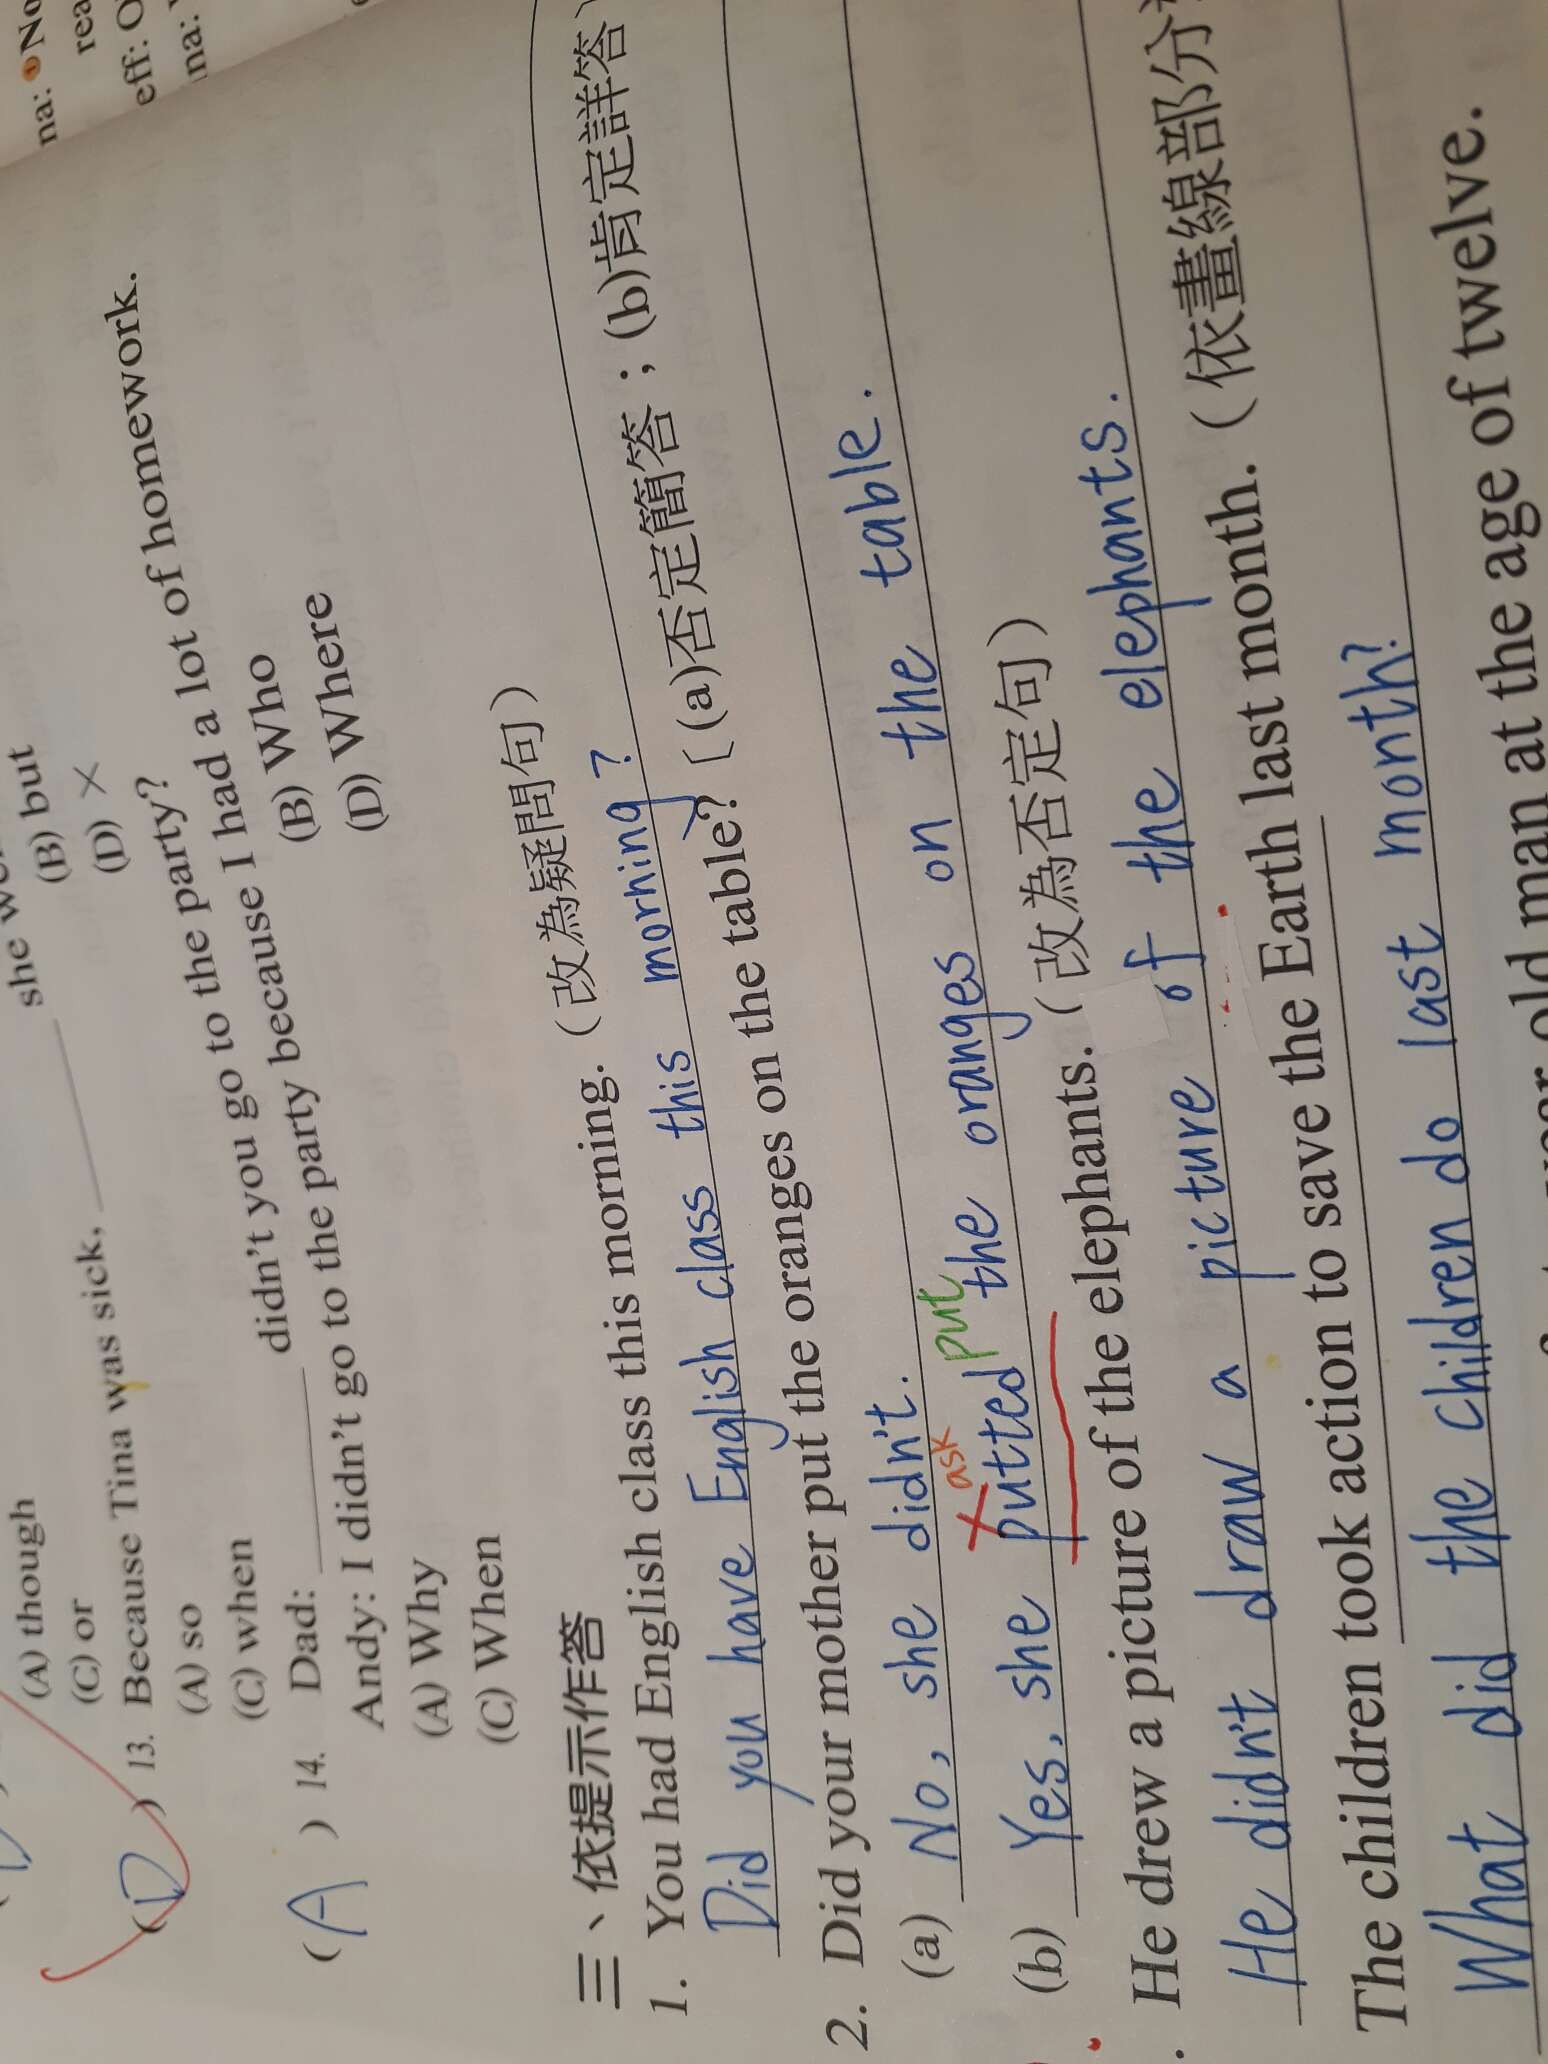 na: ❶No
rea
eff: O
na:
she
(A) though (B) but
(C) or (D) ×
(D) 13. Because Tina was sick, ________ she
(A) so
(C) when
the party?
(A) 14. Dad: ________ didn't you go to the party because I had a lot of homework.
Andy: I didn't go to the party because I
(A) Why (B) Who
(C) When (D) Where
三、依提示作答
1. You had English class this morning.（改為疑問句）
Did you have English class this morning?
2. Did your mother put the oranges on the table?〔(a)否定簡答；(b)肯定詳答
(a) No, she didn't.
ask put
(b) Yes, she putted the oranges on the table.
. He drew a picture of the elephants.（改為否定句）
He didn't draw a picture of the elephants.
The children took action to save the Earth last month.（依畫線部分
What did the children do last month?
old man at the age of twelve.